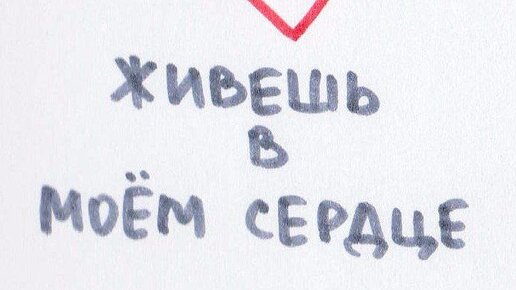 ЖИВЕШЬ
В
МОЁМ СЕРДЦЕ